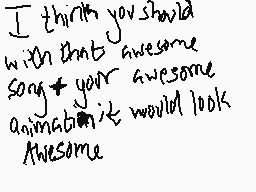 I think you should
with that awesome
song + your awesome
animation it would look
Awesome